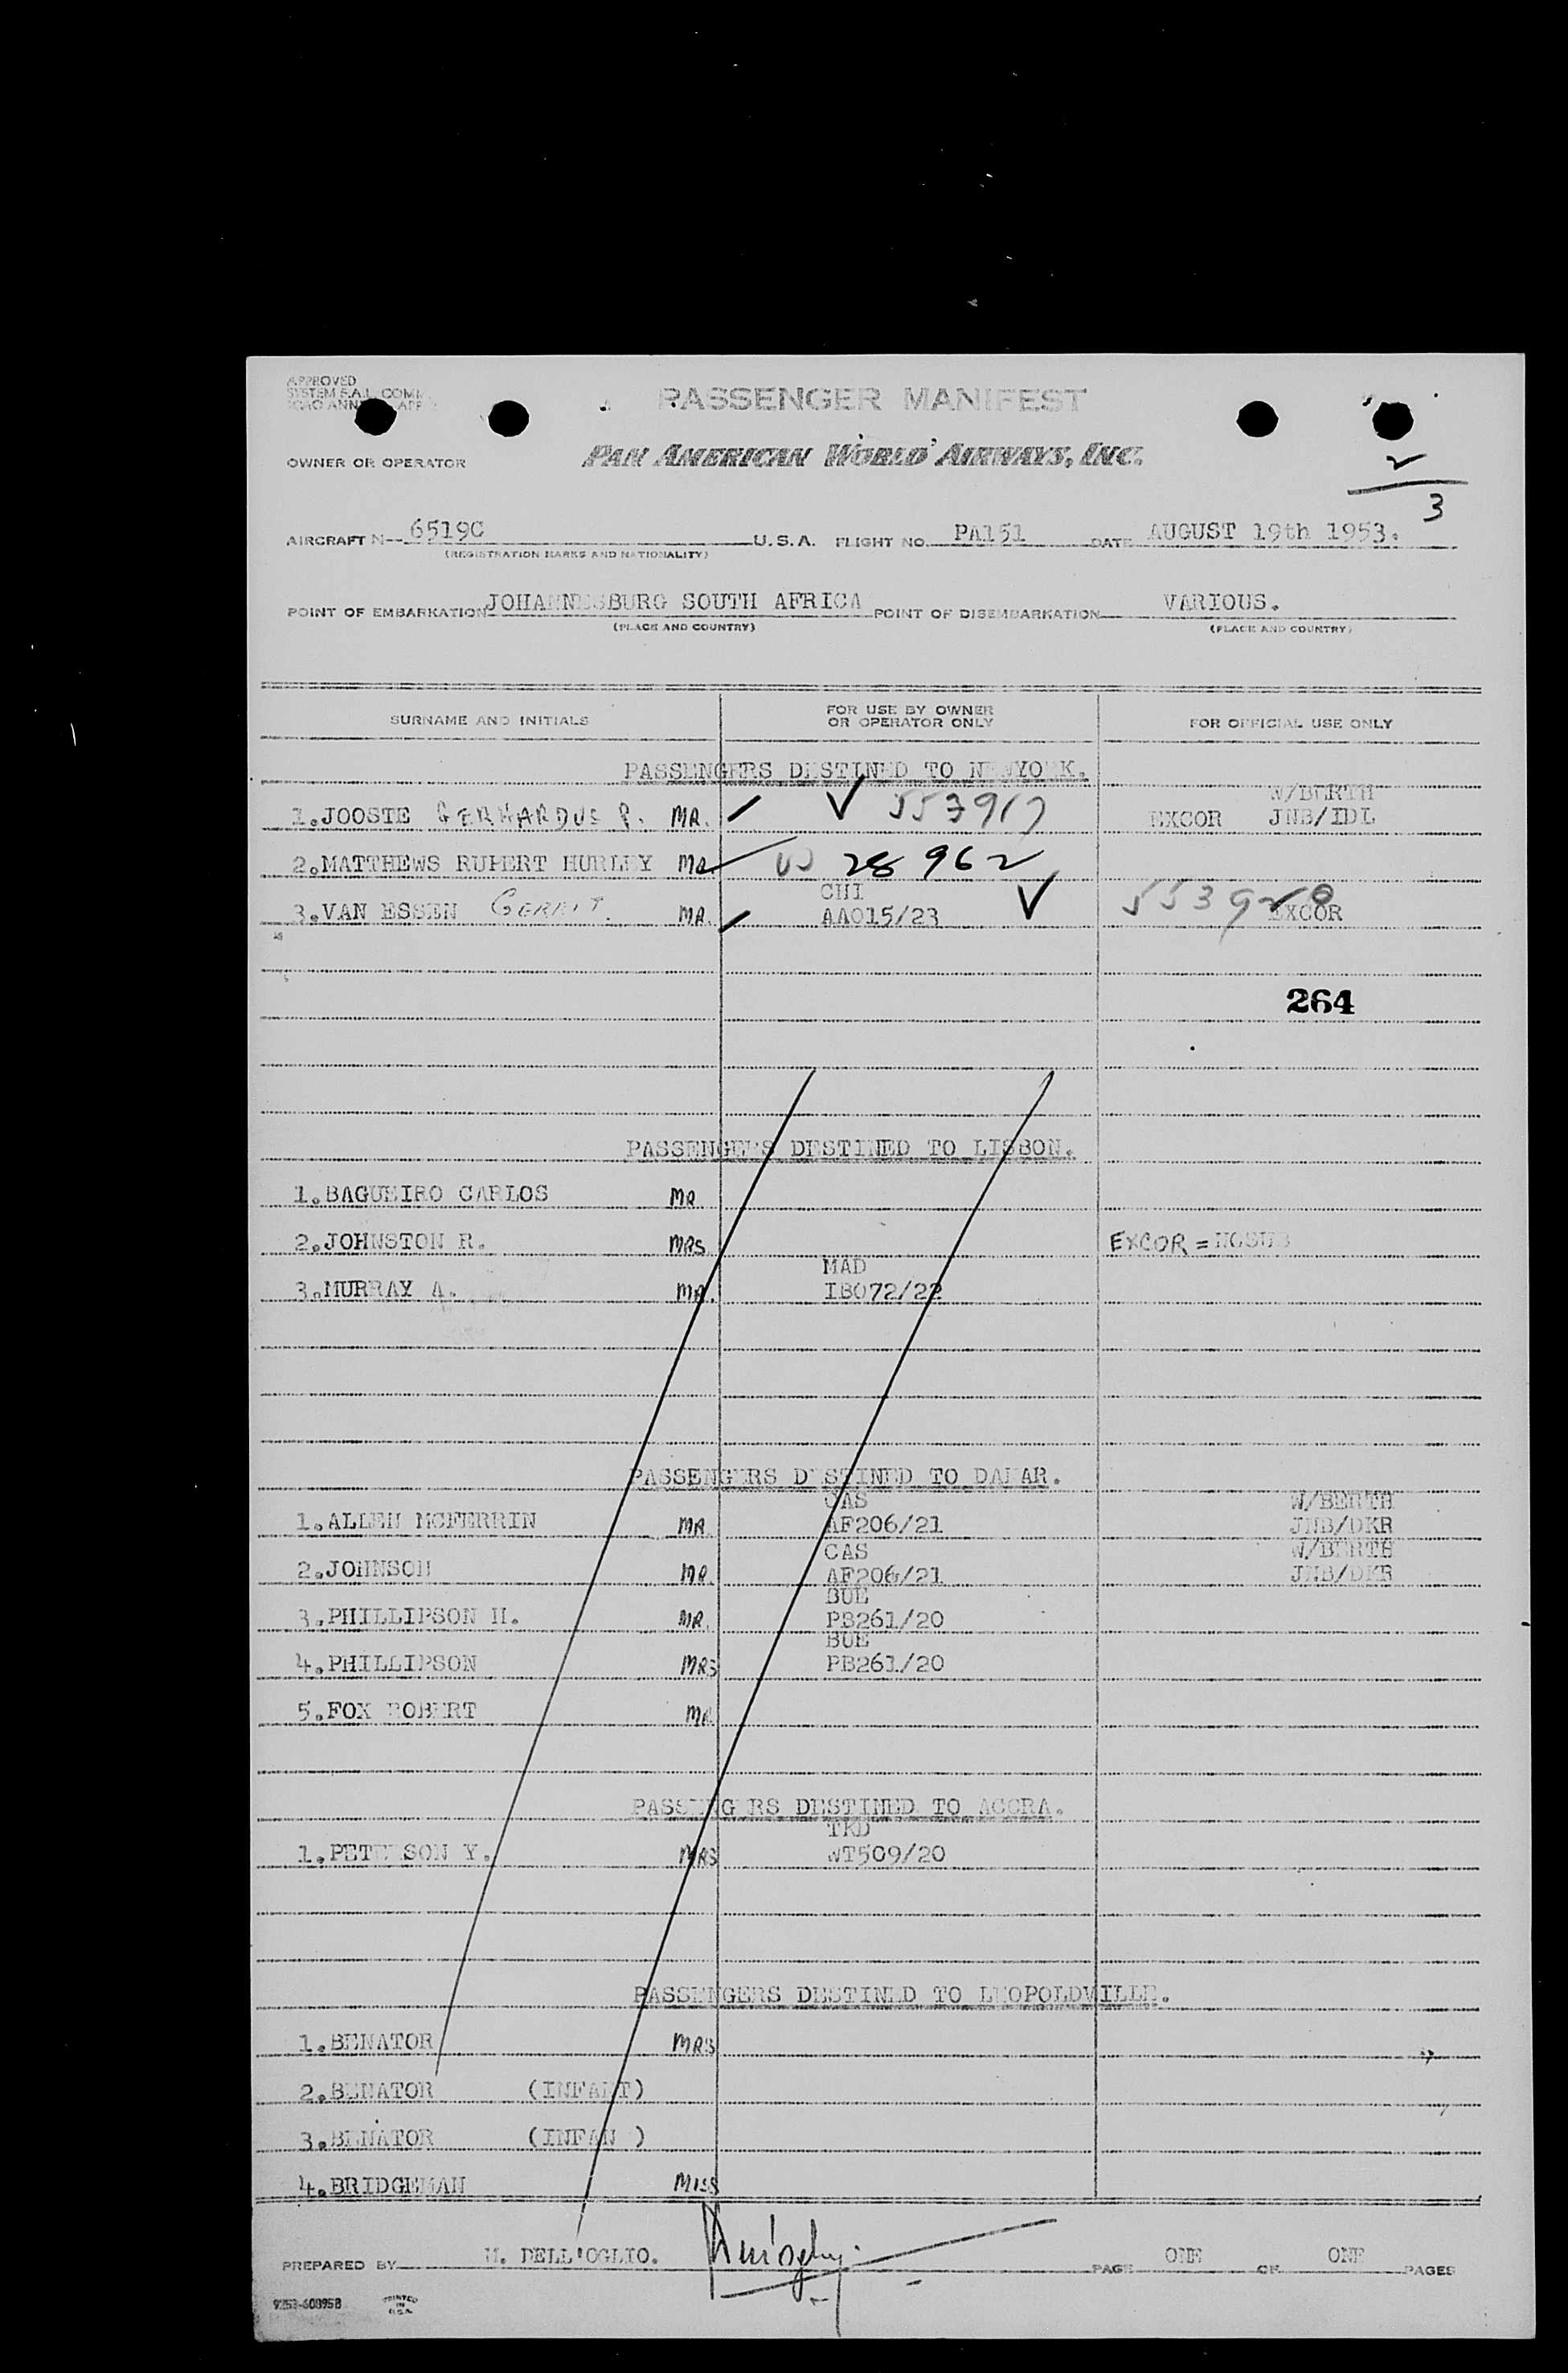 APPROVED
SYSTEM F.A.L. COMM.
ICAO ANNEX APP
PASSENGER MANIFEST
OWNER OR OPERATOR PAN AMERICAN WORLD AIRWAYS, INC.
2
3
AIRCRAFT N-- 6519C U.S.A. FLIGHT NO. PA151 DATE AUGUST 19th 1953.
(REGISTRATION MARKS AND NATIONALITY)
POINT OF EMBARKATION JOHANNESBURG SOUTH AFRICA POINT OF DISEMBARKATION VARIOUS.
(PLACE AND COUNTRY) (PLACE AND COUNTRY)
SURNAME AND INITIALS FOR USE BY OWNER OR OPERATOR ONLY FOR OFFICIAL USE ONLY
PASSENGERS DESTINED TO NEWYORK.
W/BERTH
1.JOOSTE GERHARDUS P. MR. ✓ 553917 EXCOR JNB/IDL
2.MATTHEWS RUPERT HURLEY MR. 28962
CHI
3.VAN ESSEN GERRIT. MR. AA015/23 ✓ 553920 EXCOR
264
PASSENGERS DESTINED TO LISBON.
1.BAGUEIRO CARLOS MR
2.JOHNSTON R. MRS EXCOR = NOSUB
MAD
3.MURRAY A. MR. IB072/22
PASSENGERS DESTINED TO DAKAR.
CAS W/BERTH
1.ALLEN MCFERRIN MR. AF206/21 JNB/DKR
CAS W/BERTH
2.JOHNSON MR. AF206/21 JNB/DKR
BUE
3.PHILLIPSON H. MR. PB261/20
BUE
4.PHILLIPSON MRS PB261/20
5.FOX ROBERT MR.
PASSENGERS DESTINED TO ACCRA.
TKD
1.PETERSON Y. MRS WT509/20
PASSENGERS DESTINED TO LEOPOLDVILLE.
1.BENATOR MRS
2.BENATOR (INFANT)
3.BENATOR (INFAN )
4.BRIDGEMAN MISS
PREPARED BY M. DELL'OGLIO. PAGE ONE OF ONE PAGES
PRINTED IN U.S.A.